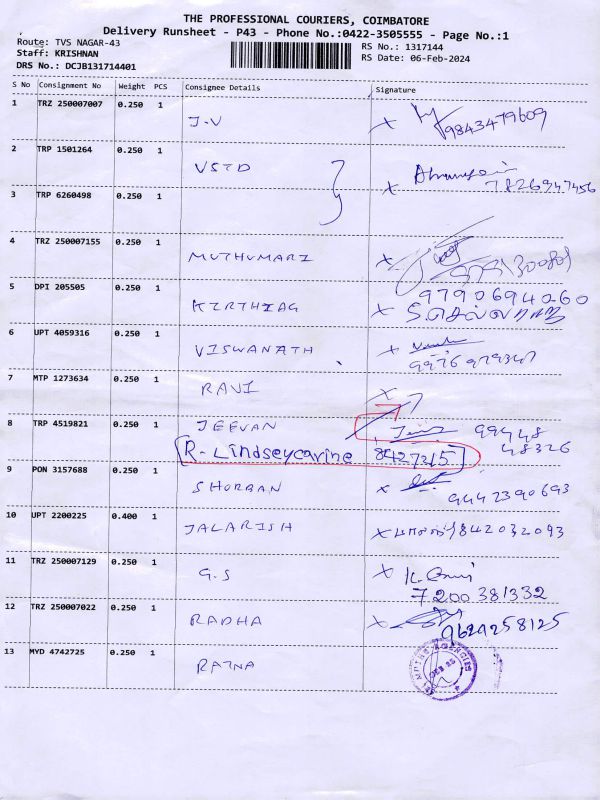 THE PROFESSIONAL COURIERS, COIMBATORE
Delivery Runsheet - P43 - Phone No.:0422-3505555 - Page No.:1
Route: TVS NAGAR-43
RS No.: 1317144
Staff: KRISHNAN
RS Date: 06-Feb-2024
DRS No.: DCJB131714401
S No Consignment No Weight PCS Consignee Details Signature
1 TRZ 250007007 0.250 1 J.V X 9843479609
2 TRP 1501264 0.250 1 VSTD X 7826947456
3 TRP 6260498 0.250 1
4 TRZ 250007155 0.250 1 MUTHUMARI X
5 DPI 205505 0.250 1 KIRTHIAG 9790694060
X S.செல்லராஜ்
6 UPT 4059316 0.250 1 VISWANATH X
9976979347
7 MTP 1273634 0.250 1 RAVI X
8 TRP 4519821 0.250 1 JEEVAN 99448
48326
R-Lindseycarine 8427215
9 PON 3157688 0.250 1 SHORBAN X
9442390693
10 UPT 2200225 0.400 1 JALARISH X 9842032093
11 TRZ 250007129 0.250 1 G.S X
7200381332
12 TRZ 250007022 0.250 1 RADHA X
9629258125
13 MYD 4742725 0.250 1 RATNA
AGENCIES